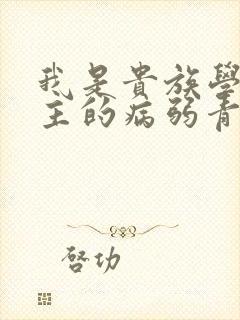 我是貴族學
主的病弱青
啓功